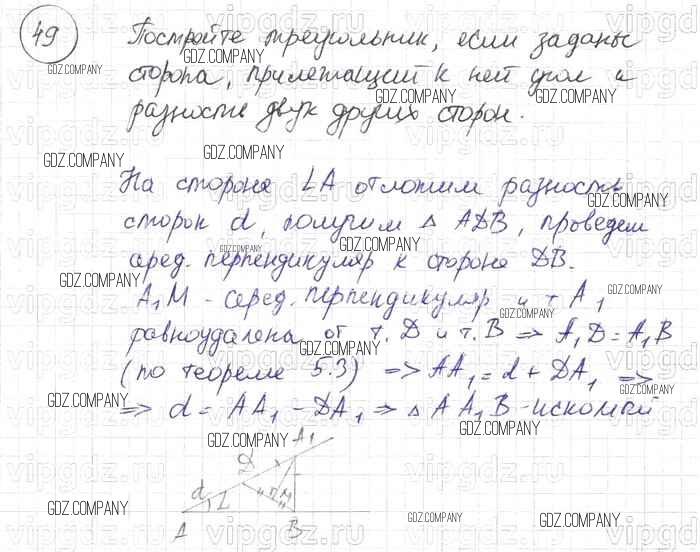 49
Постройте треугольник, если заданы
сторона, прилежащий к ней угол и
разность двух других сторон.
На стороне ∠A отложим разность
сторон d, получим △ ADB, проведем
серед. перпендикуляр к стороне DB.
A₁M - серед. перпендикуляр и т A₁
равноудалена от т. D и т. B => A₁D = A₁B
(по теореме 5.3) => AA₁ = d + DA₁ =>
=> d = AA₁ - DA₁ => △ AA₁B - искомый
A₁
D
d
M
L
A
B
GDZ.COMPANY
vipgdz.ru